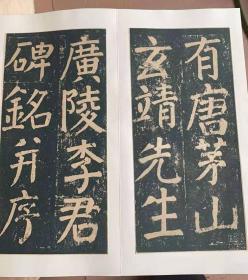 有唐茅山
玄靖先生
廣陵李君
碑銘并序